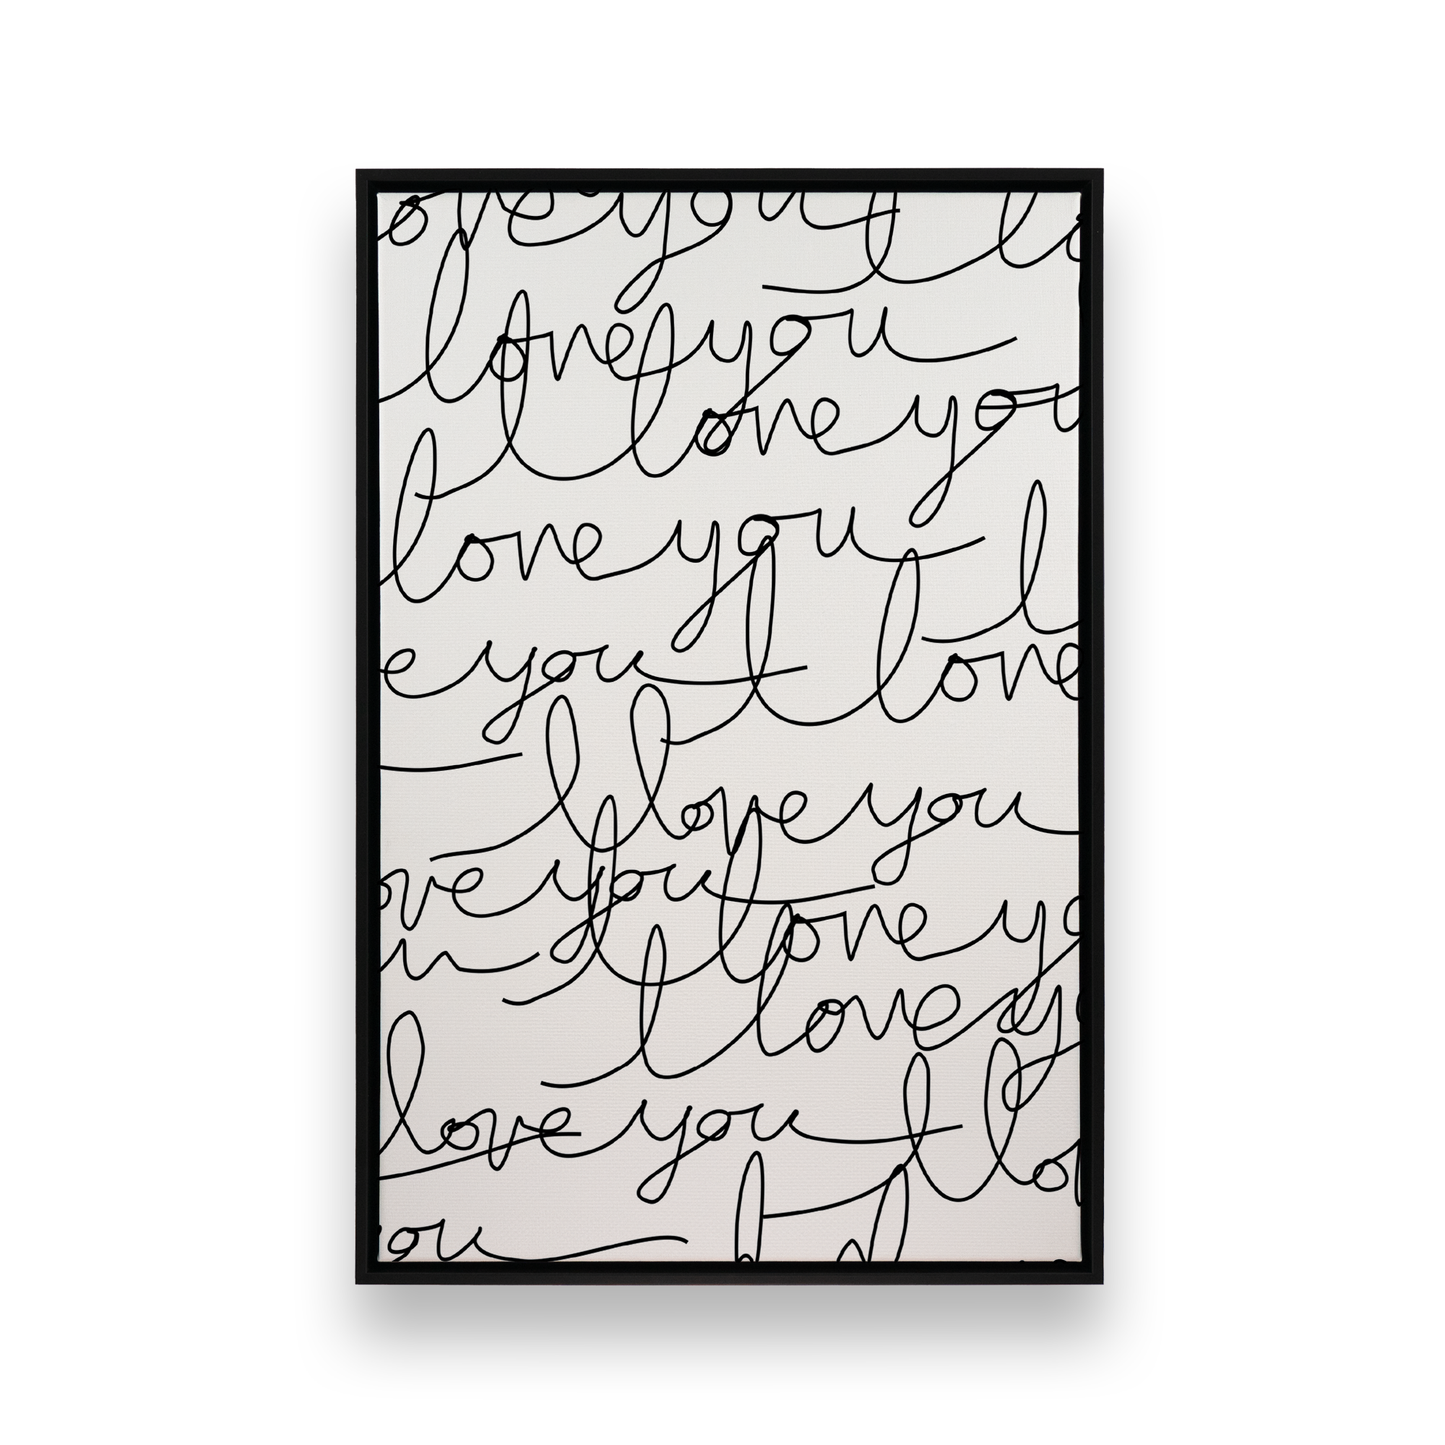 ove you I lo
love you
I love you
love you I
e you I love
I love you
ove you I love yo
u I love y
love you I lo
you I l